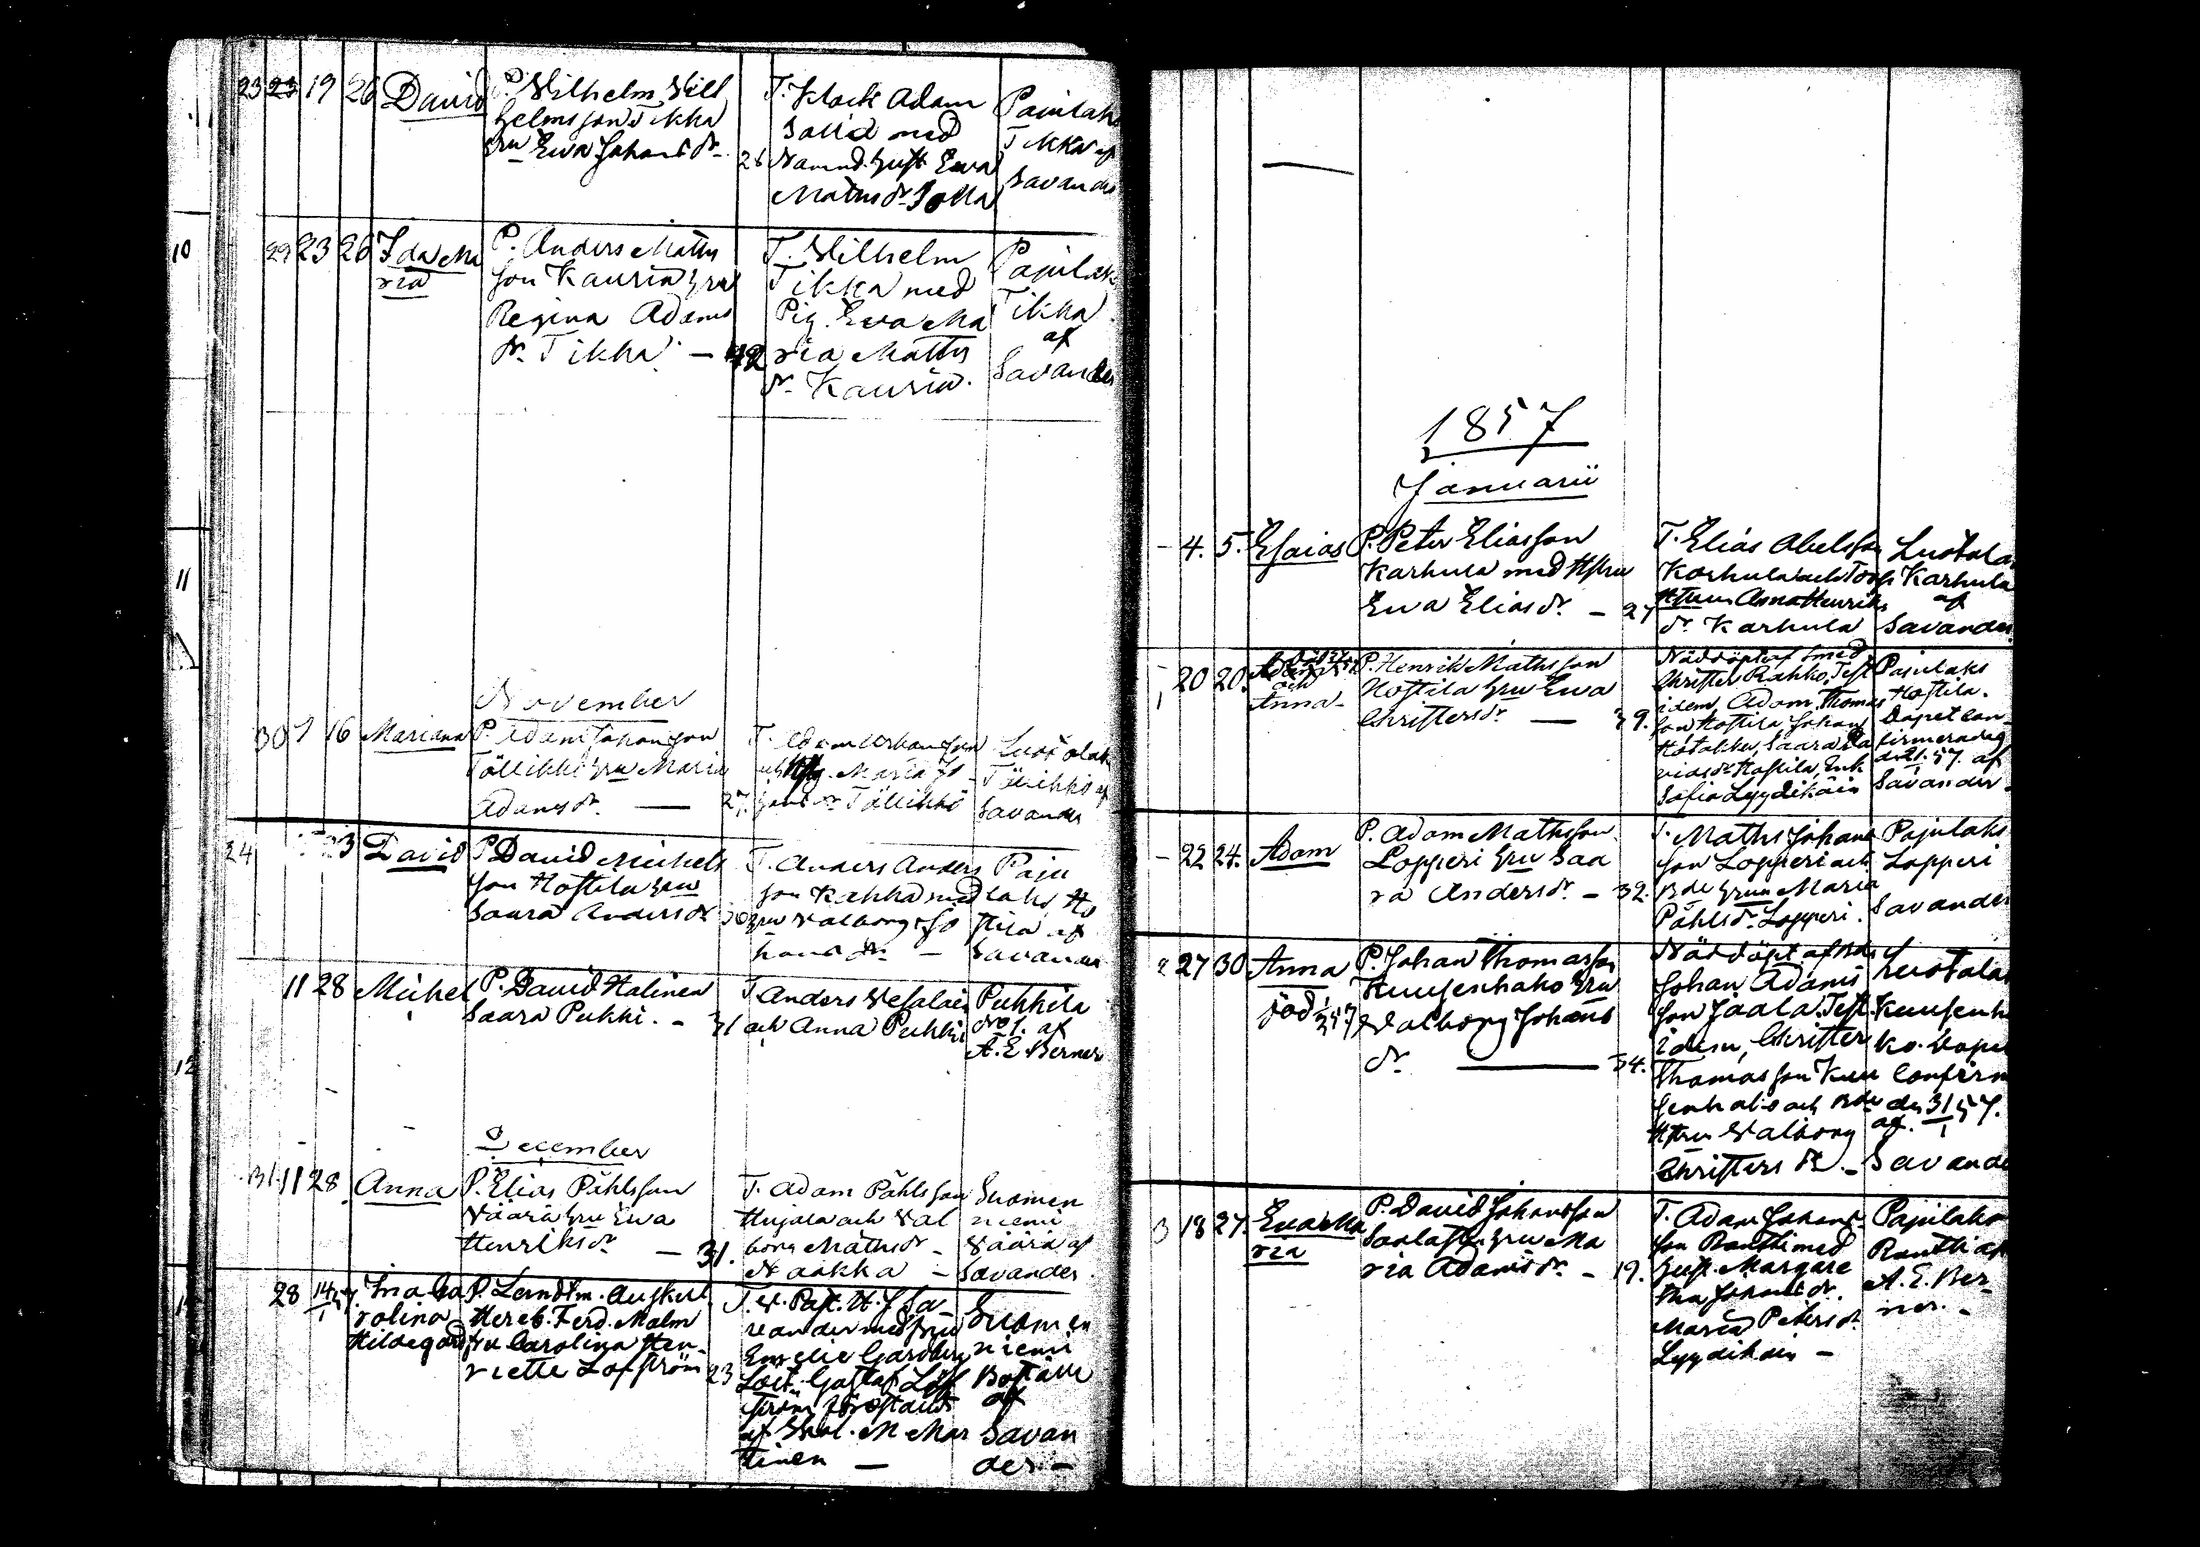 23 23 19 26 David
P. Wilhelm Will
helmsson Tikka
hru Ewa Johansdr
T. Klock. Adam
Sallid med
26 Namnd. hust Ewa
Mathsdr
Pajulaks
Tikka af
Savander
10
29 23 26 Ida Ma
ria
P. Anders Matts
son Kauria hru
Regina Adams
dr. Tikka. — 42
T. Wilhelm
Tikka med
Pig. Ewa Ma
ria Matts
dr. Kauria.
Pajulaks
Tikka
af
Savander
11
November
30 7 16 Mariana
P. Adam Johansson
Töllikkö hru Maria
Adamsdr. — 27.
T. Adam Urbansson
och Maria Jo
hansdr Töllikkö
Luotolaks
Töllikkö af
Savander
24 23 David
P. David Michels
son Hostila hru
Saara Andersdr
T. Anders Anders
son Kakka med
hru Valborg Jo
hansdr —
Paju
laks Ho
stila af
Savander
11 28 Michel
P. David Halinen
Saara Pukki. — 31
T. Anders Vesalai
och Anna Pukki
Pukkila
No 1. af
A. E. Berner
12
December
31 11 28 Anna
P. Elias Påhlsson
Väärä hru Ewa
Henriksdr — 31.
T. Adam Påhlsson
Hujala och Val
borg Mathsdr —
Naakka —
Suomen
niemi
Väärä af
Savander
28 14/1 57. Ina Ca
rolina
Hildegard
P. Landtm. Auskult
Hereb. Ferd. Malm
fru Carolina Hen-
riette Löfström 23
T. V. Past. H. J. Sa-
veander med fru
Emelie Gardberg
Loit. Gustaf Löf
ström företrädd
af M Mar
tinen —
Suomen
niemi
Boställe
af
Savan
der. —
1857
Januarii
— 4. 5. Esaias
P. Peter Eliasson
Karhula med Hstru
Ewa Eliasdr. — 27
T. Elias Abelsson
Karhula och Torp
Hstrun Anna Henriks
dr. Karhula
Luotola
Karhula
af
Savander
20 20.
och
Anna
P. Henrik Mathsson
Hostila hru Ewa
Christersdr — 39.
Näddöpt af Smed
Christer Rahko, Test
idem, Adam Thomas
son Hostila Johan
Hotakka, Saara Da
vidsdr Hostila, Enk
Sofia Lyydikäin
Pajulaks
Hostila.
Dopet con-
firmerades
d. 21/1 57. af
Savander
— 22 24. Adam
P. Adam Mathsson
Lopperi hru Saa
ra Andersdr — 32.
T. Maths Johans
son Lopperi och
Bde hrun Maria
Påhlsdr. Lopperi.
Pajulaks
Lopperi
Savander
2 27 30 Anna
P. Johan Thomasson
Kuusenhako hru
Walborg Johans
dr — 34.
Näddöpt af Bde
Johan Adams
son Jaala. Test.
idem, Christer
Thomasson Kuu
senhako och Bde
Hstrun Valborg
Christersdr. —
Luotolaks
Kuusenha
ko. Dope
confirm
des 31/1 57.
af.
Savande
3 18 27. Ewa Ma
ria
P. David Johansson
hru Ma
ria Adamsdr. — 19.
T. Adam Johans-
son Rantti med
hust. Margare
tha Johansdr.
Maria Petersdr
Lyydikäin —
Pajulaks
Rantti af
A. E. Ber-
ner. —